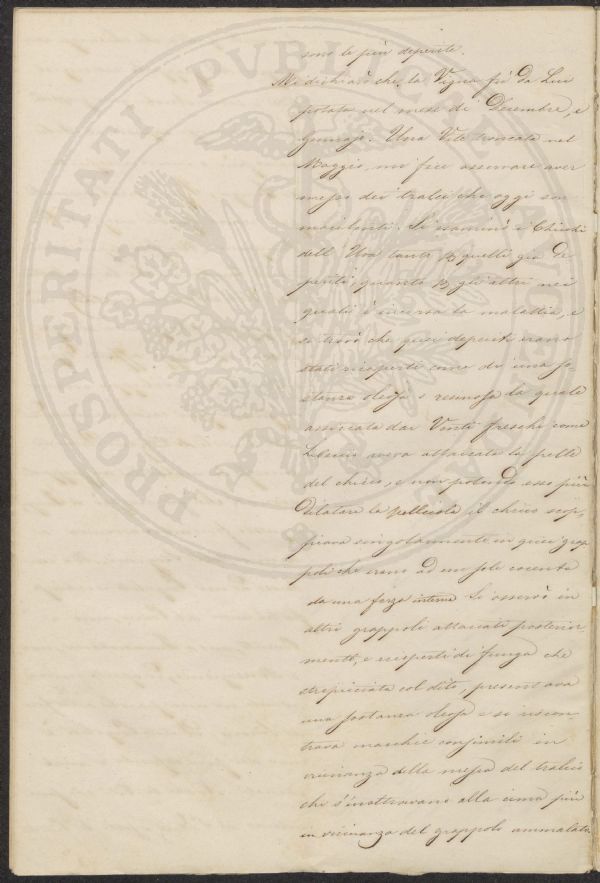 sono le più deperite.
Mi dichiarò che la Vigna fù da Lui
potata nel mese di Decembre, e
Gennajo. Una Vite troncata nel
Maggio, mi fece osservare aver
messo dei tralci che oggi son
. Si esaminò i Chicchi
dell'Uva tanto quelli già de
periti, quanto gli altri nei
quali è incorsa la malattia, e
si trovò che quei deperiti erano
stati ricoperti come di una so
stanza oleosa e resinosa la quale
assiccata dai Venti freschi come
aveva attaccato la pelle
del chicco, e non potendo esso più
dilatare la pellicola il chicco scop
piava singolarmente in quei grap
poli che erano ad un sole cocente
da una forza interna. Si osservò in
altri grappoli attaccati posterior
mente, e ricoperti di funga che
strepicciata col dito, presentava
una sostanza oleosa e si riscon
trava macchie consimili in
vicinanza della messa del tralcio
che s'inoltravano alla cima più
in vicinanza del grappolo ammalato.
PROSPERITATI PUBLICAE AUGENDAE